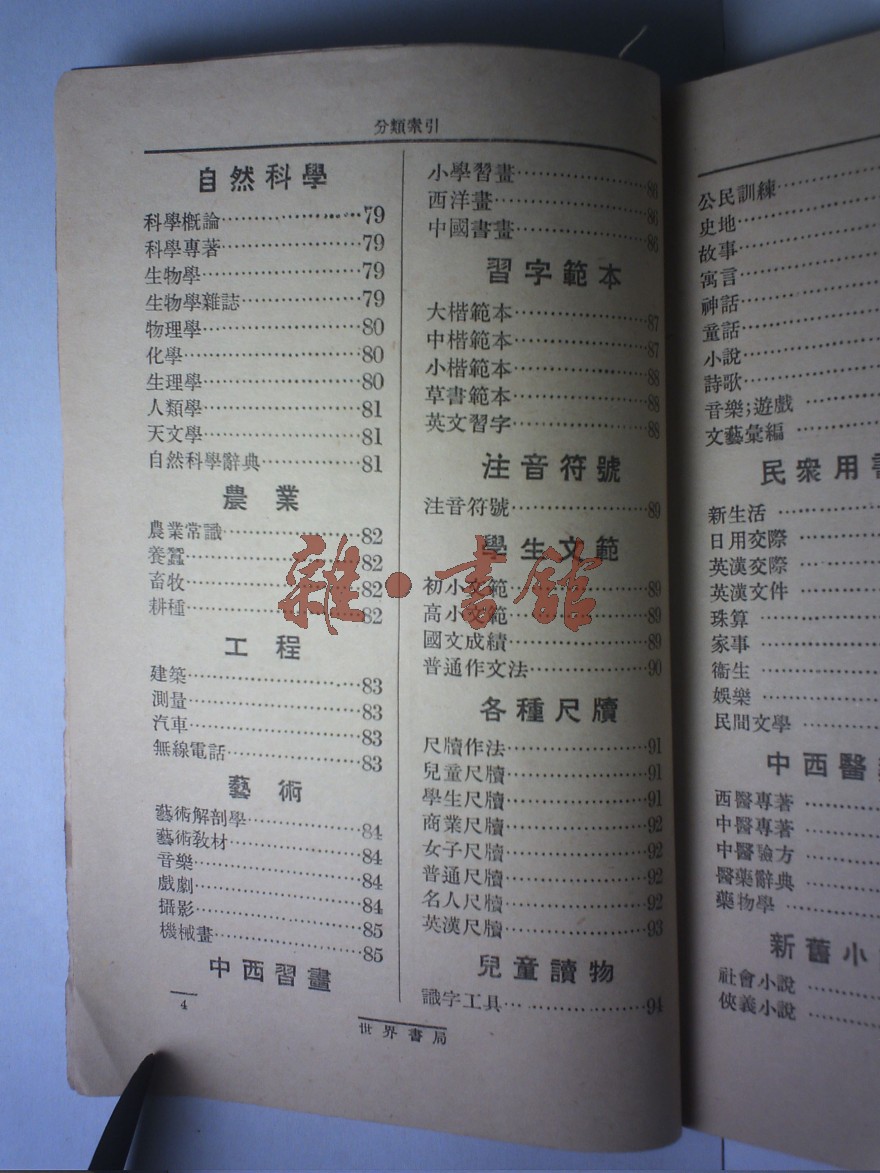 分類索引
自然科學
科學概論……79
科學專著……79
生物學……79
生物學雜誌……79
物理學……80
化學……80
生理學……80
人類學……81
天文學……81
自然科學辭典……81
農業
農業常識……82
養蠶……82
畜牧……82
耕種……82
工程
建築……83
測量……83
汽車……83
無線電話……83
藝術
藝術解剖學……84
藝術敎材……84
音樂……84
戲劇……84
攝影……85
機械畫……85
中西習畫
小學習畫……86
西洋畫……86
中國書畫……86
習字範本
大楷範本……87
中楷範本……87
小楷範本……88
草書範本……88
英文習字……88
注音符號
注音符號……89
學生文範
初小文範……89
高小文範……89
國文成績……89
普通作文法……90
各種尺牘
尺牘作法……91
兒童尺牘……91
學生尺牘……91
商業尺牘……92
女子尺牘……92
普通尺牘……92
名人尺牘……92
英漢尺牘……93
兒童讀物
識字工具……94
4
世界書局
雜·書館
公民訓練……
史地……
故事……
寓言……
神話……
童話……
小說……
詩歌……
音樂;遊戲……
文藝彙編……
民衆用
新生活……
日用交際……
英漢交際……
英漢文件……
珠算……
家事……
衞生……
娛樂……
民間文學……
中西醫
西醫專著……
中醫專著……
中醫驗方……
醫藥辭典……
藥物學……
新舊小
社會小說……
俠義小說……